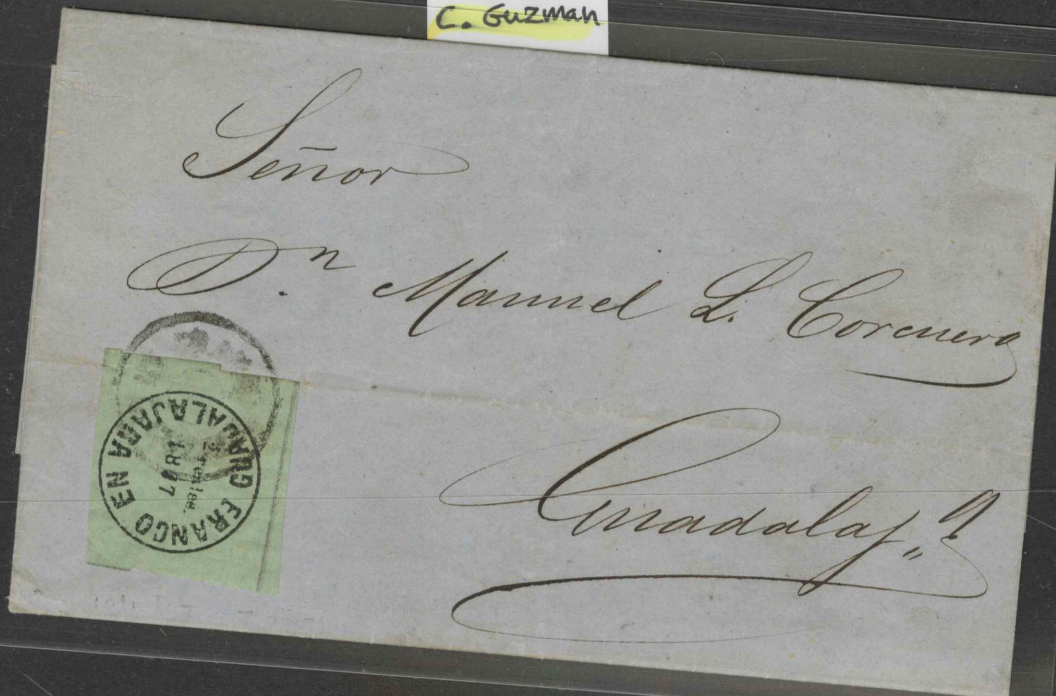 C. Guzman
Señor
Dn. Manuel L. Corcuera
Guadalaj„a
FRANCO EN GUADALAJARA
2 reales.
1867